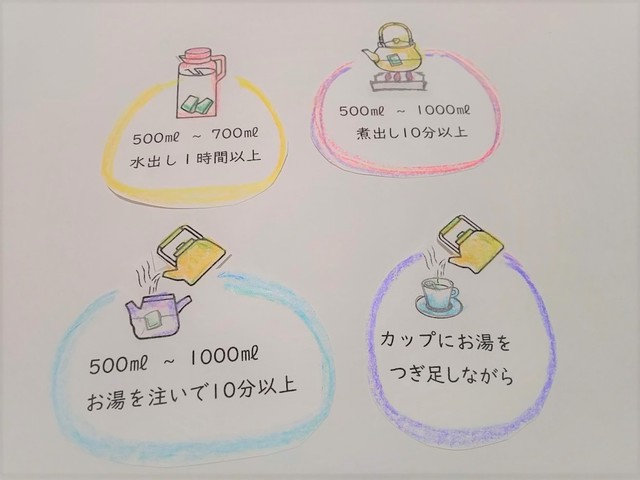 500㎖ ~ 700㎖
水出し1時間以上
500㎖ ~ 1000㎖
煮出し10分以上
500㎖ ~ 1000㎖
お湯を注いで10分以上
カップにお湯を
つぎ足しながら